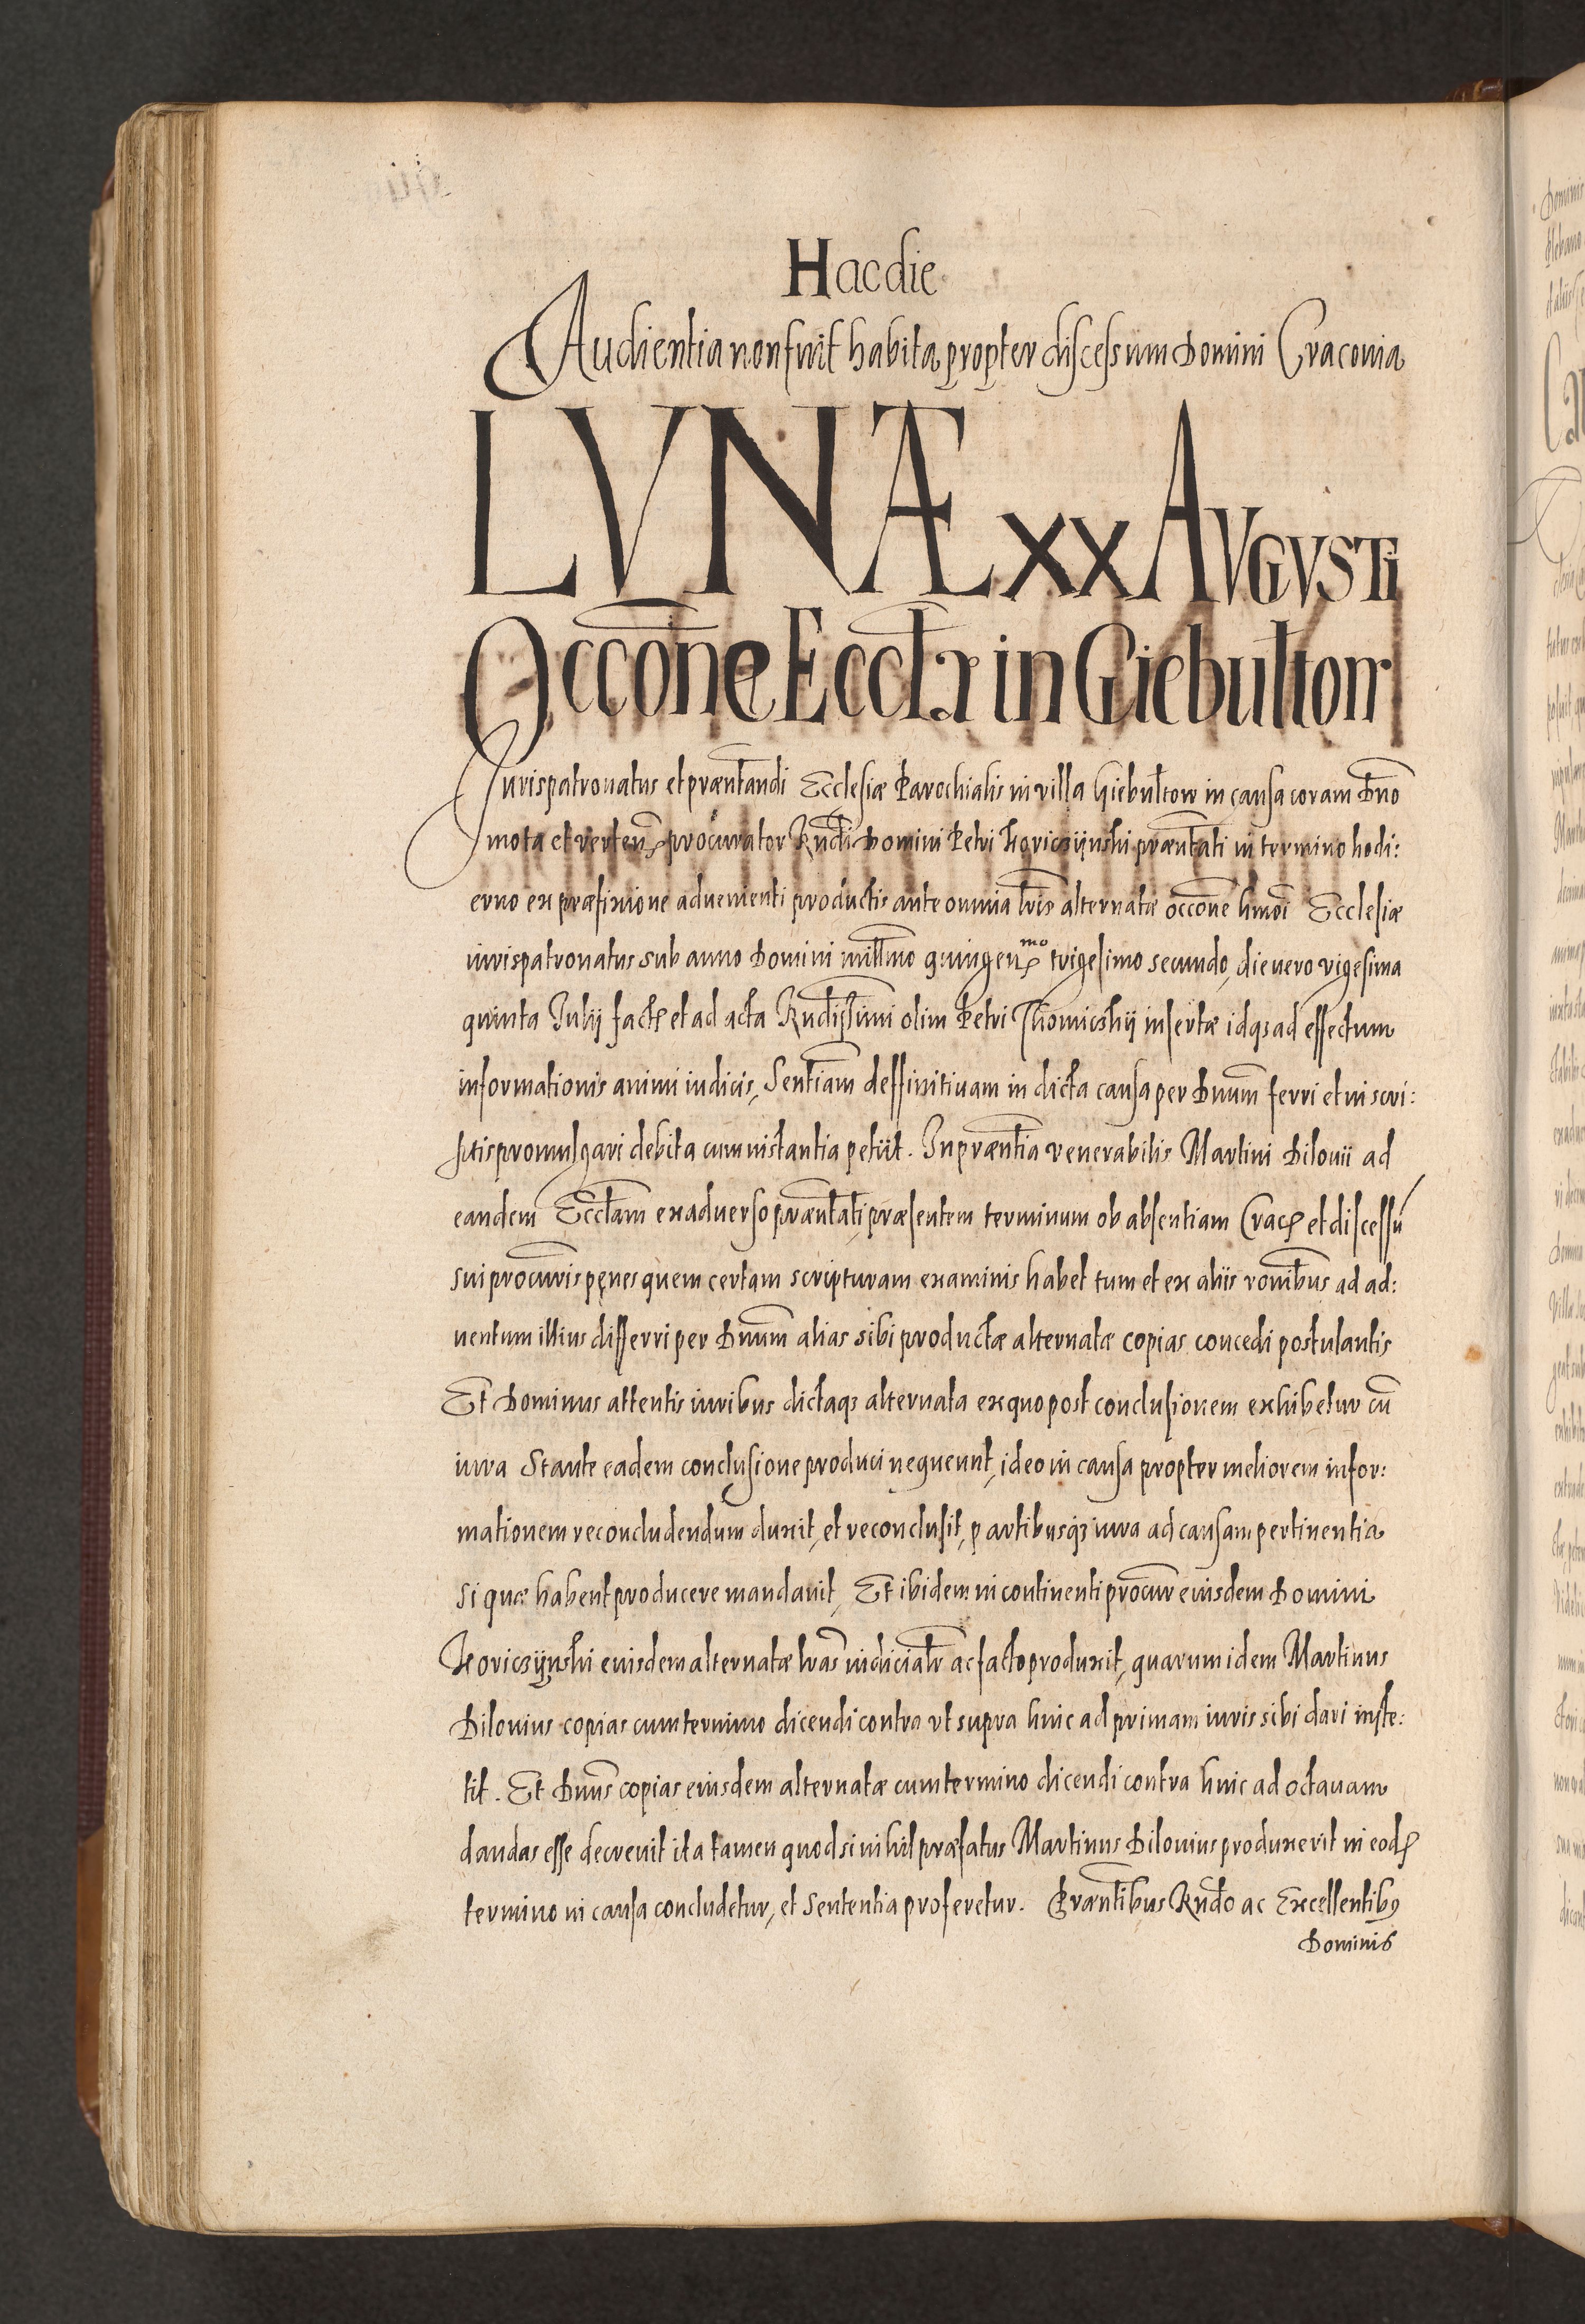 Hac die
Audientia non fuit habita propter discessum Domini Cracovia
LVNÆ XX AVGVSTI
Occone Ecctæ in Giebultow
Jurispatronatus et præntandi Ecclesiæ Parochialis in villa Giebultow in causa coram Dno
mota et verten procurator Rndi Domini Petri Koriczijnski præntati in termino hodi:
erno ex præfixione advenienti productis ante omnia lris alternatæ occone hmoi Ecclesiæ
iurispatronatus sub anno Domini millmo quingenmo trigesimo secundo, die vero vigesima
quinta Julij fact et ad acta Rndissimi olim Petri Thomiczkij insertæ idqз ad effectum
informationis animi iudicis, Sentiam deffinitivam in dicta causa per Dnum ferri et in scri:
ptis promulgari debita cum instantia petiit. In præntia venerabilis Martini Bilovii ad
eandem Ecctam ex adverso præntati, præsentem terminum ob absentiam Crac et discessu
sui procuris penes quem certam scripturam examinis habet tum et ex aliis ronibus ad ad:
ventum illius differri per Dnum alias sibi productæ alternatæ copias concedi postulantis
Et Dominus attentis iuribus dictaqз alternata ex quo post conclusionem exhibetur cu
iura Stante eadem conclusione produci nequeunt, ideo in causa propter meliorem infor:
mationem reconcludendum duxit, et reconclusit, partibusqз iura ad causam pertinentia
si quæ habent producere mandavit, Et ibidem in continenti procur eiusdem Domini
Koriczijnski eiusdem alternatæ lras iudicialr ac facto produxit, quarum idem Martinus
Bilovius copias cum termino dicendi contra vt supra hinc ad primam iuris sibi dari inste:
tit. Et Dnus copias eiusdem alternatæ cum termino dicendi contra hinc ad octavam
dandas esse decrevit ita tamen quod si nihil præfatus Martinus Bilovius produxerit in eod
termino in causa concludetur, et Sententia proferetur. Præntibus Rndo ac Excellentibꝰ
Dominis